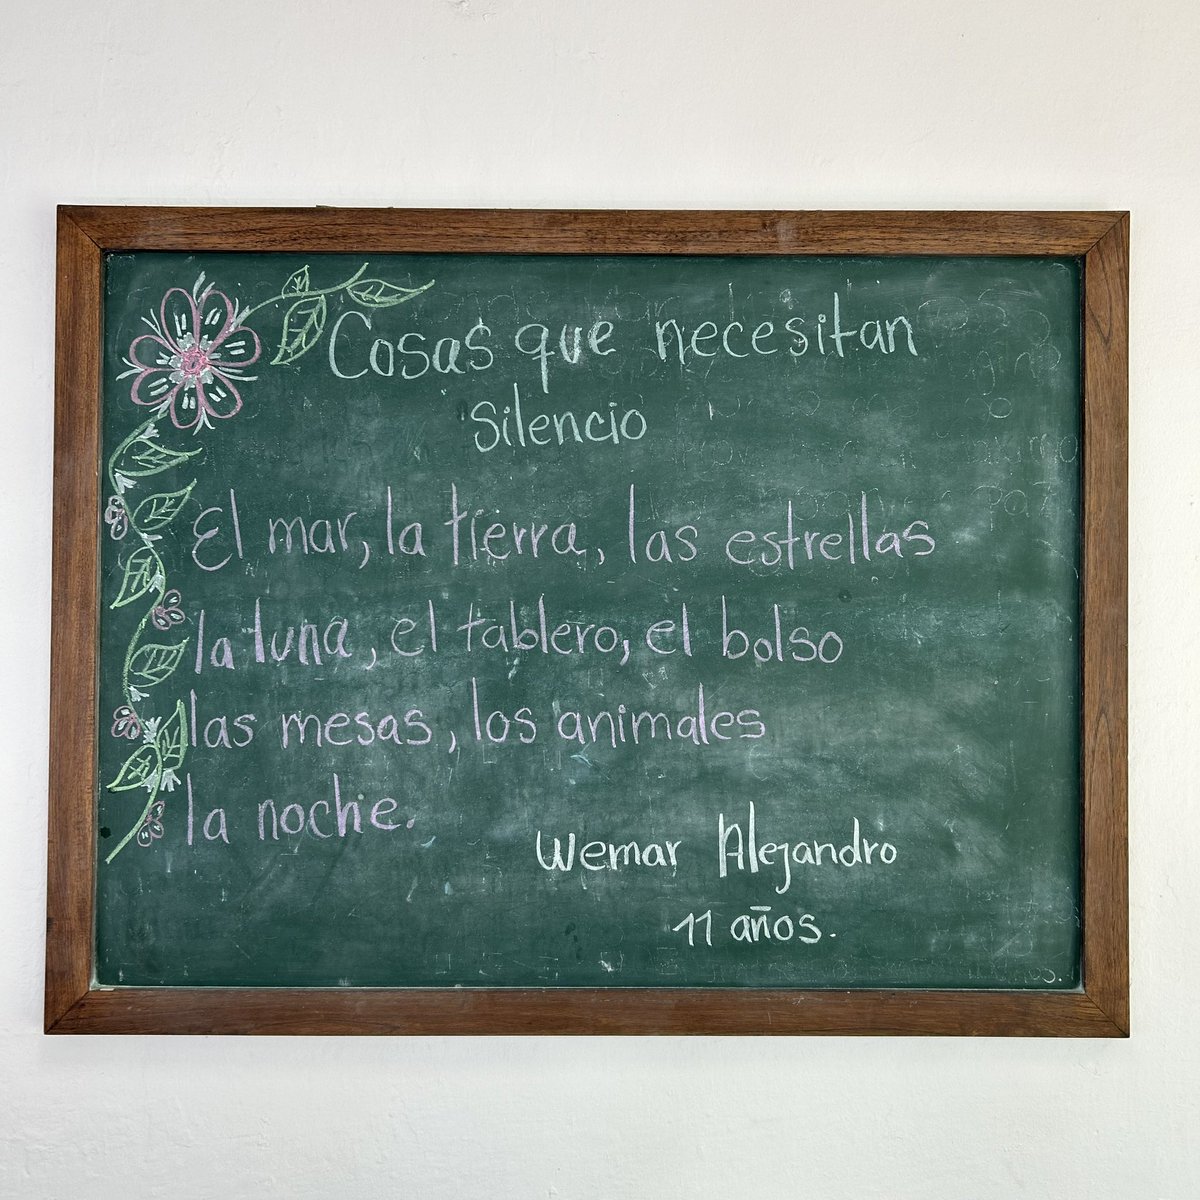 Cosas que necesitan
Silencio
El mar, la tierra, las estrellas
la luna, el tablero, el bolso
las mesas, los animales
la noche.
Wemar Alejandro
11 años.